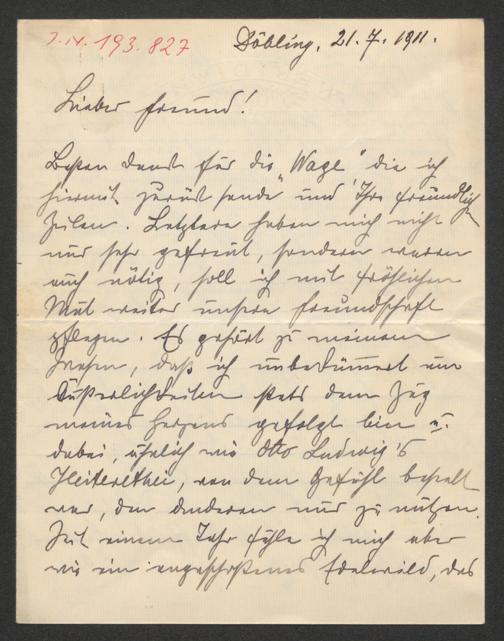 J.N. 193.827
Döbling, 21.7.1911.
Lieber Freund!
Besten Dank für die „Wage" die ich
hiermit zurück sende und Ihre freundlich
Zeilen. Letztere haben mich nicht
nur sehr gefreut, sondern waren
auch nötig, soll ich mit fröhlichem
Mut weiter unsere Freundschaft
pflegen. Es gehört zu meinem
Wesen, daß ich unbekümmert um
Äußerlichkeiten stets dem Zug
meines Herzens gefolgt bin u.
dabei, ähnlich wie Otto Ludwig's
Heiterethei, von dem Gefühl beseelt
war, den Anderen nur zu nützen.
Seit einem Jahr fühle ich mich aber
wie ein angeschoßenes Edelwild, das